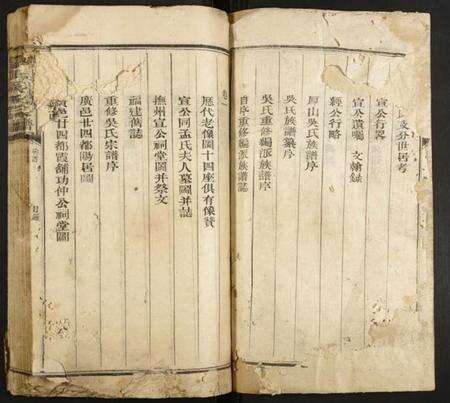 分世居考
宣公行畧
宣公遺囑 文翰錄
經公行略
厚山吳氏族譜序
吳氏族譜業序
吳氏重修編派族譜序
自序重修編派族譜誌
卷一
歷代老像圖十四座俱有像贊
宣公同孟氏夫人墓圖并誌
撫州宣公祠堂圖并祭文
福建舊誌
重修吳氏宗譜序
廣邑廿四都陽居圖
廣邑廿四都霞舖功仲公祠堂圖